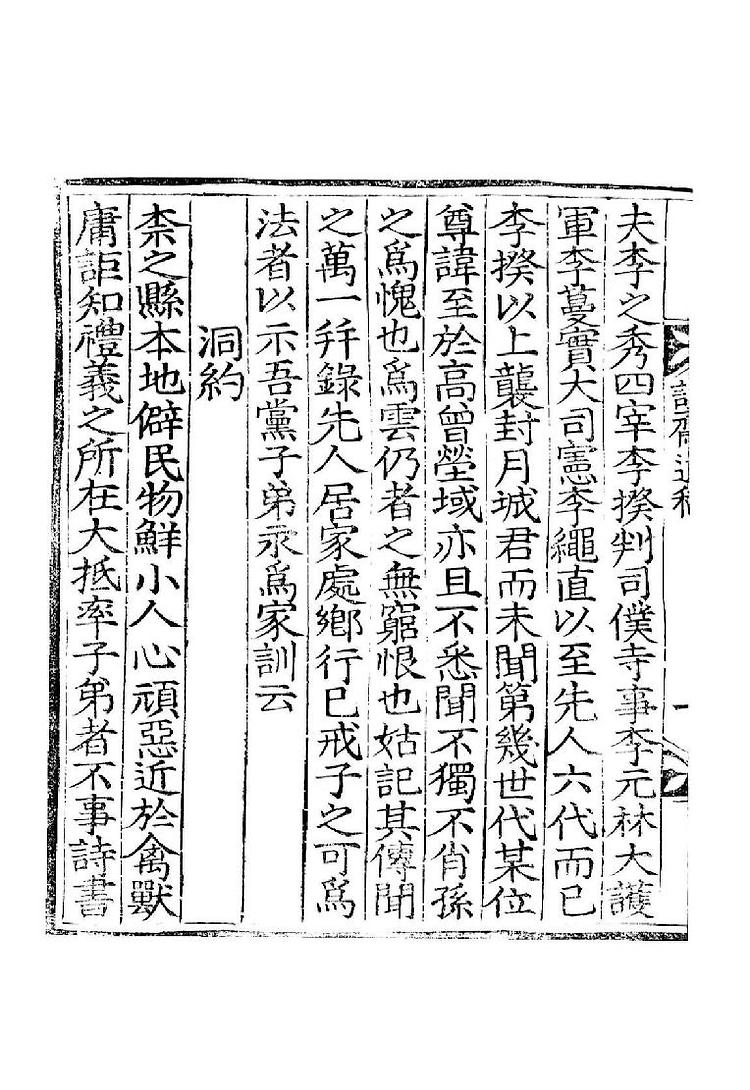 夫李之秀四宰李揆判司僕寺事李元林大護
軍李蔓實大司憲李繩直以至先人六代而已
李揆以上襲封月城君而未聞第幾世代某位
尊諱至於高曾塋域亦且不悉聞不獨不肖孫
之爲愧也爲雲仍者之無窮恨也姑記其傳聞
之萬一幷錄先人居家處鄕行已戒子之可爲
法者以示吾黨子弟永爲家訓云
洞約
柰之縣本地僻民物鮮小人心頑惡近於禽獸
庸詎知禮義之所在大抵率子弟者不事詩書